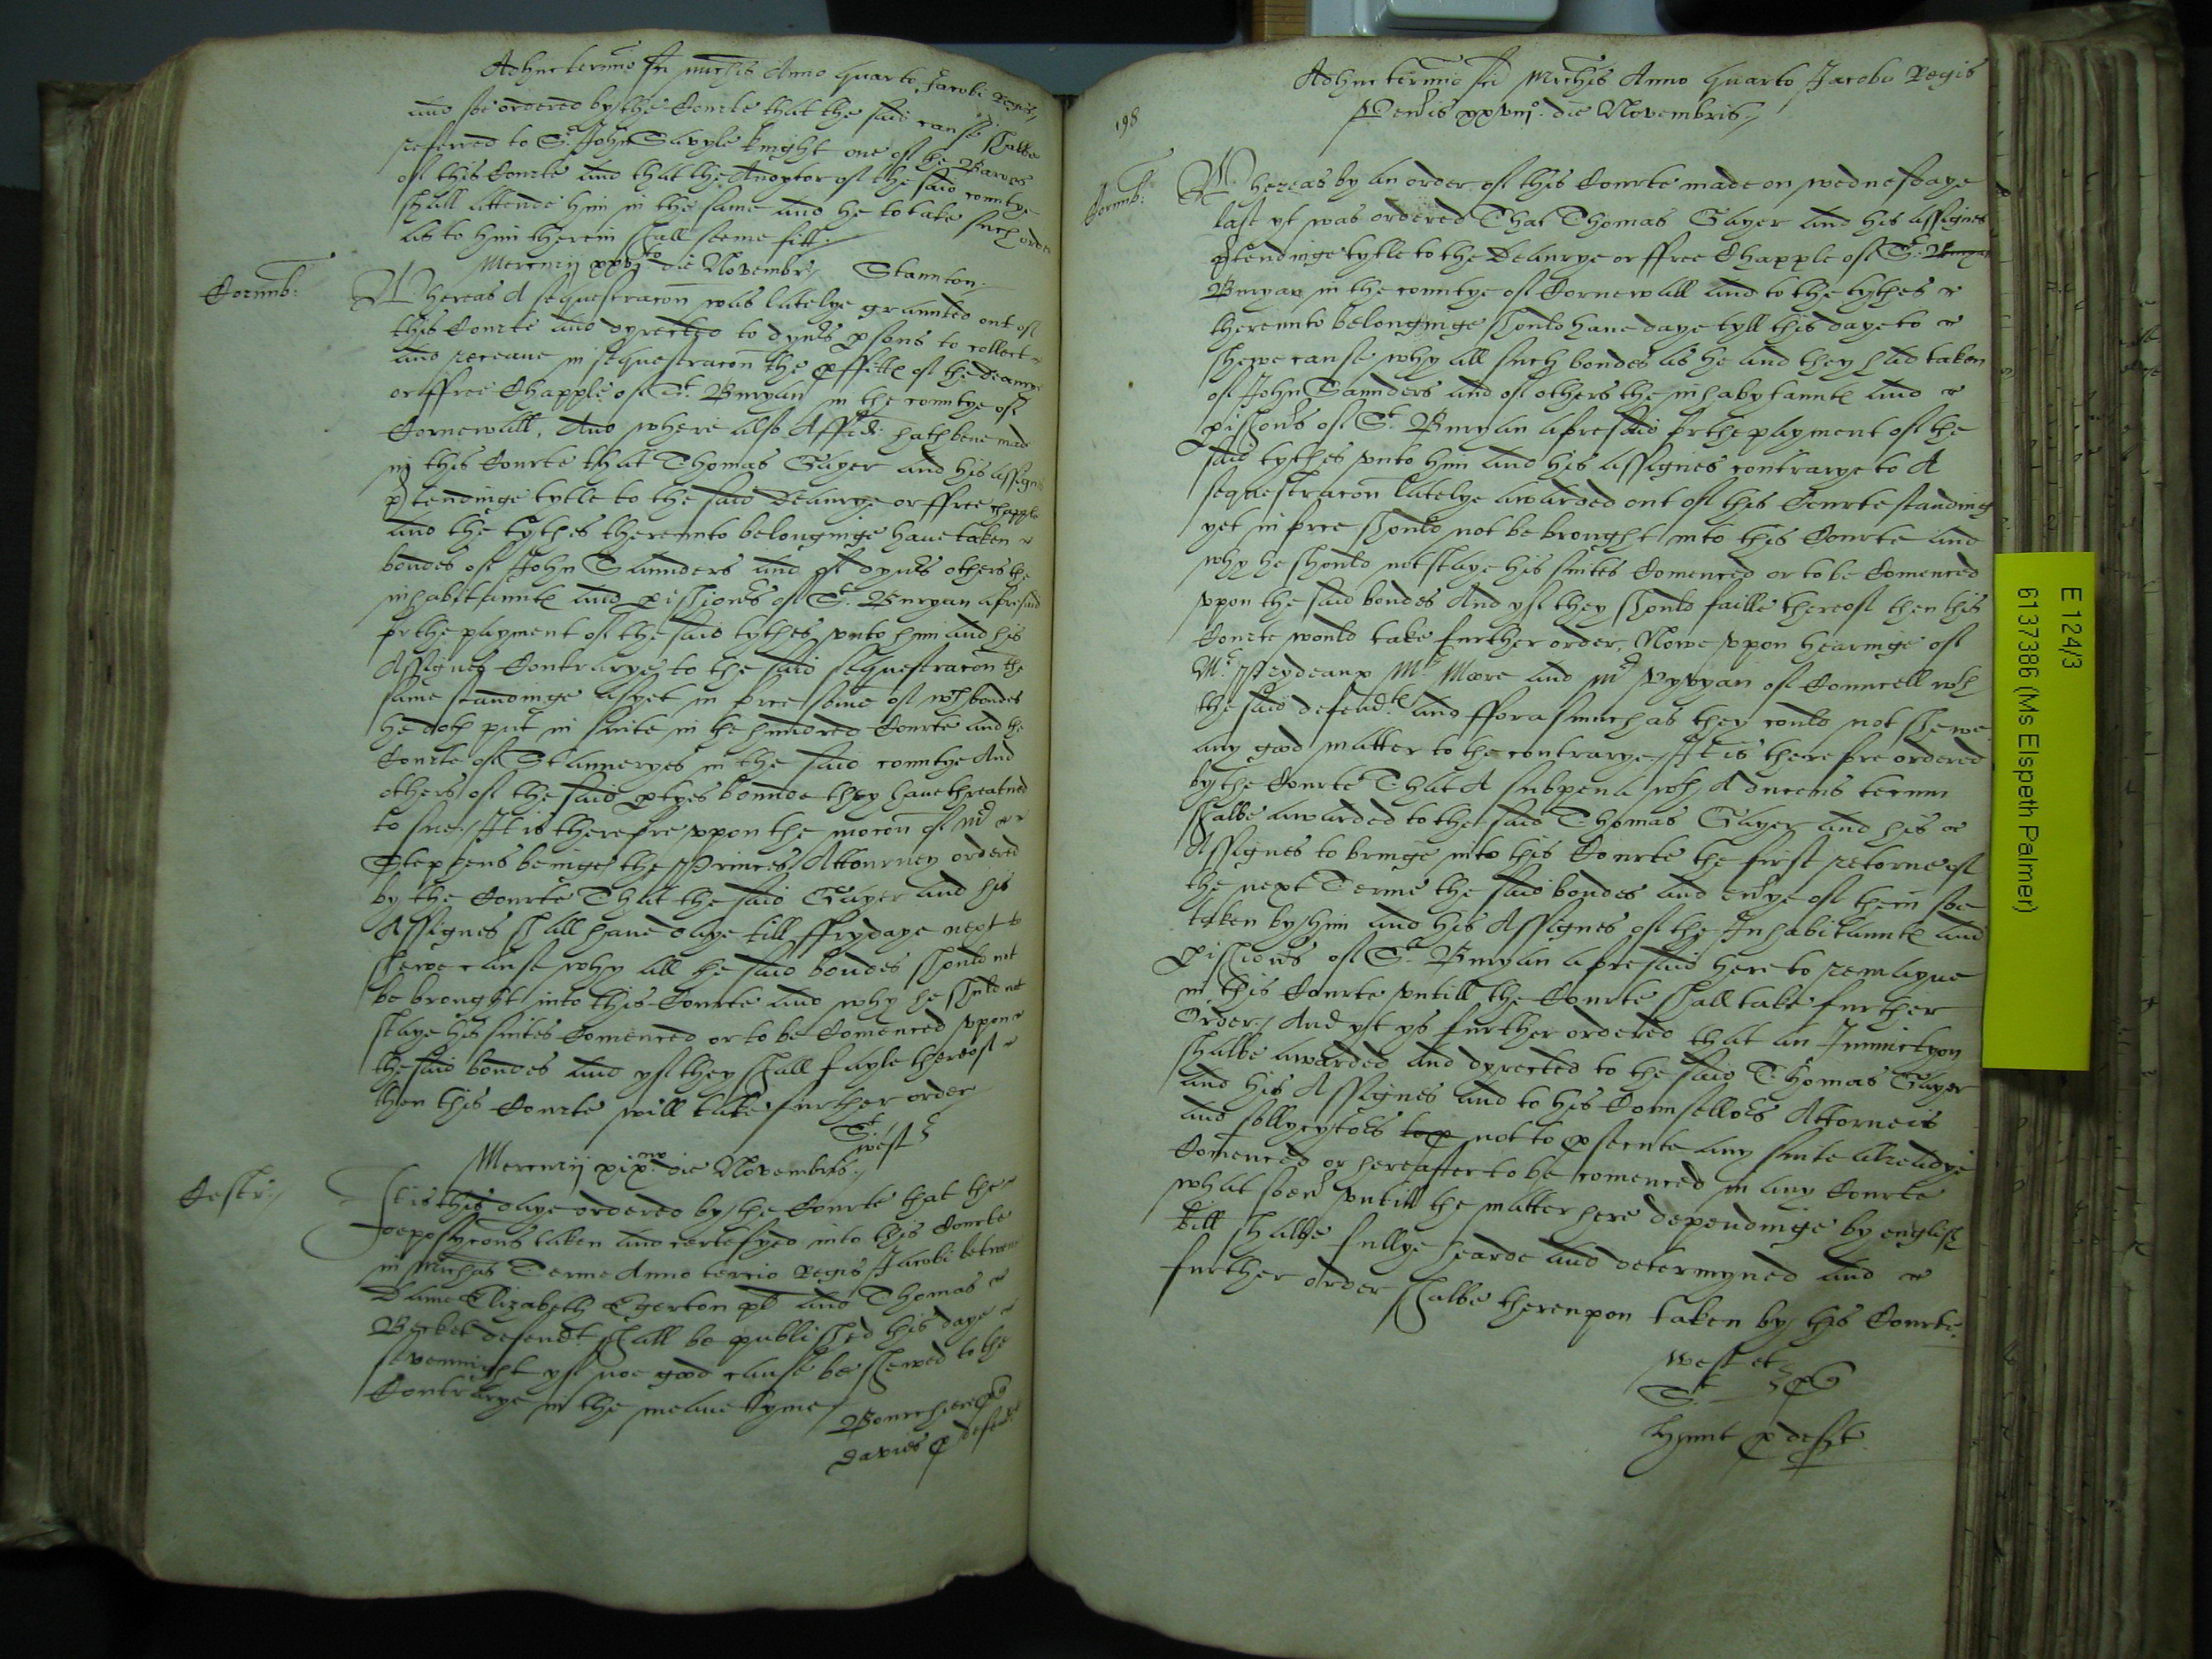 Adhuc termino Sci Michis Anno quarto Jacobi Regis
and soe ordered by the Courte that the said cause shalbe
referred to Sr John Savyle knight one of the Barons
of this Courte and that the Audytor of the said countye
shall attende him in the same and he to take such order
as to him therein shall seeme fitt.
Stanton.
Mercurij xxvjto die Novembr
Cornub:
Whereas A sequestracon was latelye graunted out of
this Courte and dyrected to dyvrs psons to collect
and receave in sequestracon the pffitts of the Deanrye
or ffree Chapple of St. Buryan in the countye of
Cornewall, And where also Affid: hath bene made
in this Courte that Thomas Gayer and his assignes
ptendinge tytle to the said Deanrye or ffree chapple
and the tythes thereunto belonginge have taken
bondes of John Saunders and of dyvrs others the
inhabitaunts and pishioners of St. Buryan aforesaid
for the payment of the said tythes unto him and his
Assignes Contrarye to the said sequestracon the
same standinge as yet in force some of wch bondes
he doth put in suite in the hundred Courte and the
Courte of Stanneryes in the said countye And
others of the said ptyes bounde they have threatned
to sue, It is therefore uppon the mocon of Mr
Stephens beinge the Princes Attourney ordered
by the Courte That the said Gayer and his
Assignes shall have daye till ffrydaye next to
shewe cause why all the said bondes should not
be brought into this Courte and why he shuld not
staye his suites Comenced or to be Comenced upon
the said bondes And yf they shall fayle thereof
then this Courte will take further order
St.
West
Mercurij xixno die Novembris
Cestr:
It is this daye ordered by the Courte that the
deposycons taken and certefyed into this Courte
in Michas Terme Anno tercio Regis Jacobi betwene
Dame Elizabeth Egerton pl and Thomas
Becket defendt shall be published this daye
sevennight yf noe good cause be shewed to the
Contrarye in the meane tyme
Bourchier p q
Davies p defend
198
Adhuc termino Sci Michis Anno quarto Jacobi Regis
Veneris xxviijo die Novembris
Cornub:
Whereas by an order of this Courte made on wednesdaye
last yt was ordered That Thomas Gayer and his assignes
ptendinge tytle to the Deanrye or ffree Chapple of St. Buryan
Buryan in the countye of Cornewall and to the tythes
thereunto belonginge should have daye tyll this daye to
shewe cause why all such bondes as he and they had taken
of John Saunders and of others the inhabytaunts and
pishoners of St. Buryan aforesaid for the payment of the
said tythes unto him and his assignes contrarye to A
sequestracon latelye awarded out of this Courte standing
yet in force should not be brought into this Courte and
why he should not staye his suites Comenced or to be Comenced
uppon the said bondes And yf they should faille thereof then this
Courte would take further order, Nowe uppon hearinge of
Mr. Prydeaux Mr. Moore and Mr Vyvyan of Councell wth
the said defendts And fforasmuch as they could not shewe
any good matter to the contrarye, It is therefore ordered
by the Courte That A subpena wth A ducens tecum
shalbe awarded to the said Thomas Gayer and his
Assignes to bringe into this Courte the first retorne of
the next Terme the said bondes and evrye of them soe
taken by him and his Assignes of the Inhabitaunts and
pishioners of St. Buryan aforesaid here to remayne
in this Courte untill the Courte shall take further
Order, And yt ys further ordered that an Iniunctyon
shalbe awarded and dyrected to the said Thomas Gayer
and his Assignes and to his Counsellors Attorneis
and sollycytors to p not to psecute any suite alreadye
Comenced or hereafter to be comenced in any Courte
whatsoevr untill the matter here dependinge by english
bill shalbe fullye hearde and determyned and
further order shalbe thereupon taken by this Courte.
West et
St. p q
Hunt p defte
E 124/3
6137386 (Ms Elspeth Palmer)